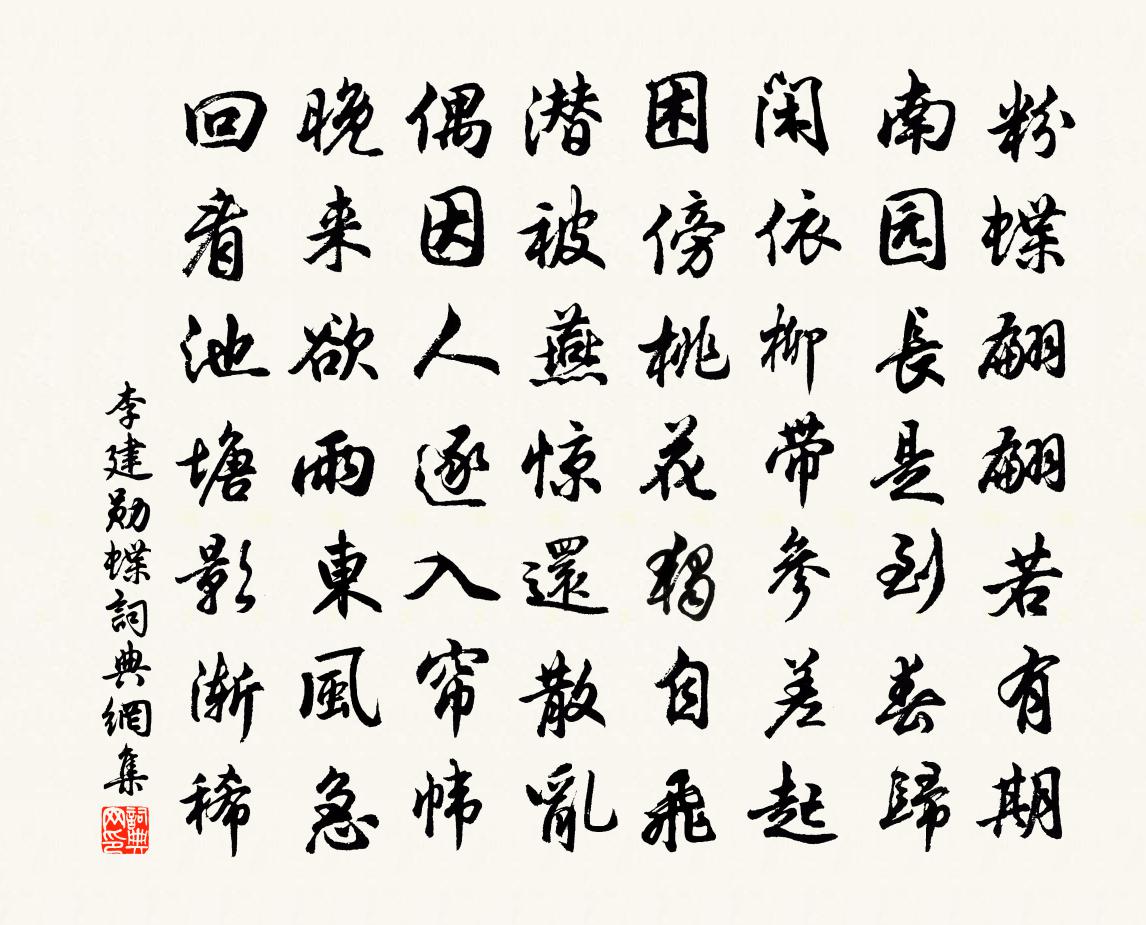 粉蝶翩翩若有期
南园長是到春歸
闲依柳帶參差起
困傍桃花獨自飛
潜被燕惊還散亂
偶因人逐入帘帏
晚来欲雨東風急
回看池塘影漸稀
李建勋蝶詞典網集
詞典网印